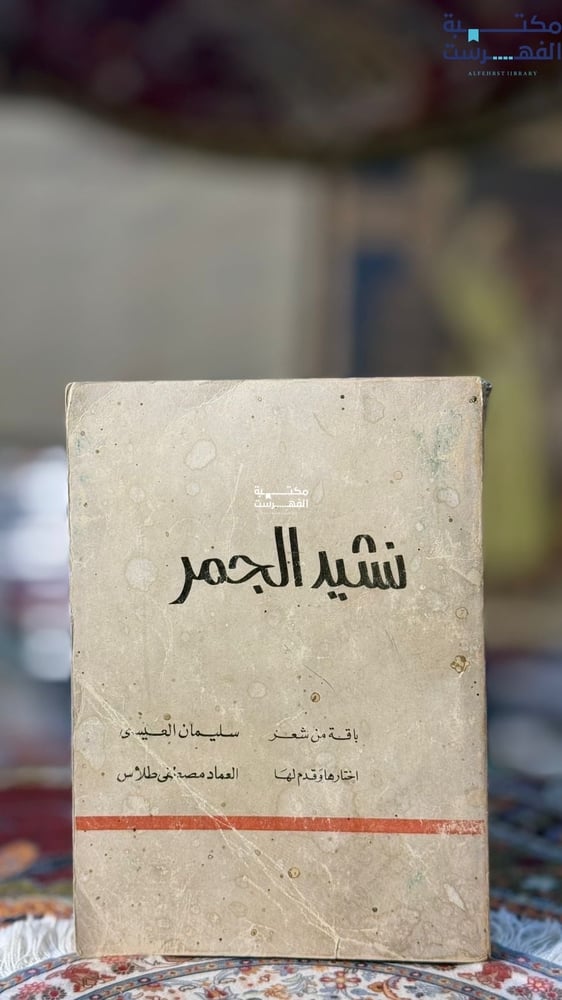 مكتبة
الفهرست
ALFEHRST LIBRARY
مكتبة
الفهرست
نشيد الجمر
باقة من شعر سليمان العيسى
اختارها وقدم لها العماد مصطفى طلاس